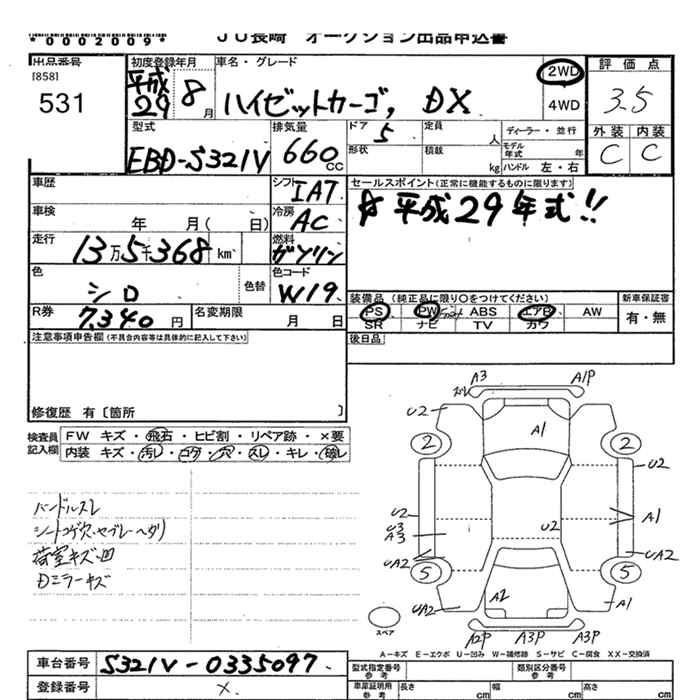 *0002009*
JU長崎 オークション出品申込書
出品番号 [858] 531
初度登録年月 平成29年8月
車名・グレード ハイゼットカーゴ, DX
2WD 4WD
評価点 3.5
外装 C 内装 C
型式 EBD-S321V
排気量 660cc
ドア 5 定員 人
形状 積載 kg
ディーラー・並行
モデル年式 年
ハンドル 左・右
車歴
シフト IAT
セールスポイント(正常に機能するものに限ります)
☆平成29年式!!
車検 年 月( 日)
冷房 AC
走行 13万5千368km
燃料 ガソリン
色 シロ 色替
色コード W19
装備品 (純正品に限り○をつけてください)
PS PW ABS エアB AW
SR ナビ TV カワ
新車保証書 有・無
R券 7,340円
名変期限 月 日
後日品
注意事項申告欄(不具合内容等は具体的に記入して下さい)
修復歴 有〔箇所 〕
検査員記入欄
FW キズ・飛石・ヒビ割・リペア跡・×要
内装 キズ・汚レ・コゲ・穴・スレ・キレ・破レ
ハンドルスレ
シートコゲ穴・ヤブレ・ヘタリ
荷室キズ・凹
Dミラーキズ
A3 A1P
スレ
U2 A1
2 2
U2
U2 U2 A1
U3
A3
UA2 UA2
5 5
UA2 A2 A1
A2P A3P A3P
スペア
A-キズ E-エクボ U-凹み W-補修跡 S-サビ C-腐食 XX-交換済
車台番号 S321V-0335097
登録番号 ×
型式指定番号 参考
類別区分番号 参考
車庫証明用 参考 長さ cm 幅 cm 高さ cm